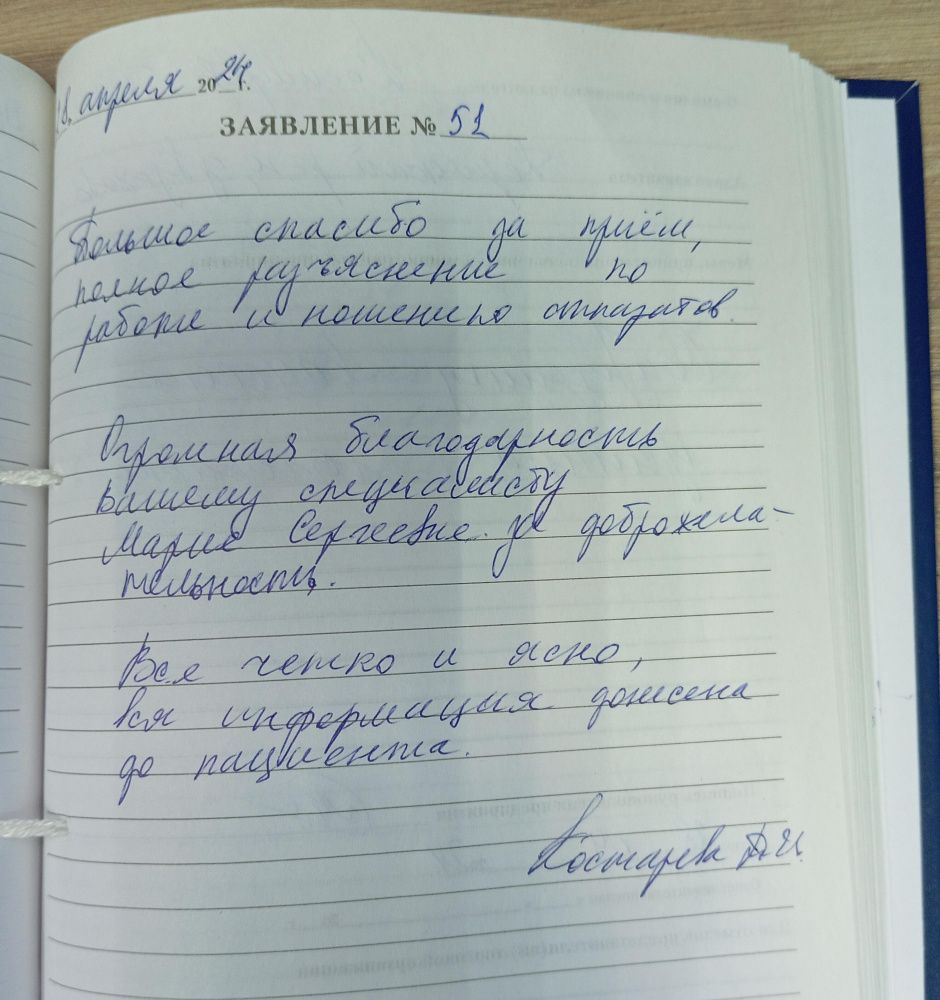 18. апреля 2024 г.
ЗАЯВЛЕНИЕ № 51
Большое спасибо за приём,
полное разъяснение по
работе и ношению аппаратов.
Огромная благодарность
вашему специалисту
Марие Сергеевне за доброжела-
тельность.
Все четко и ясно,
вся информация донесена
до пациента.
Костарева